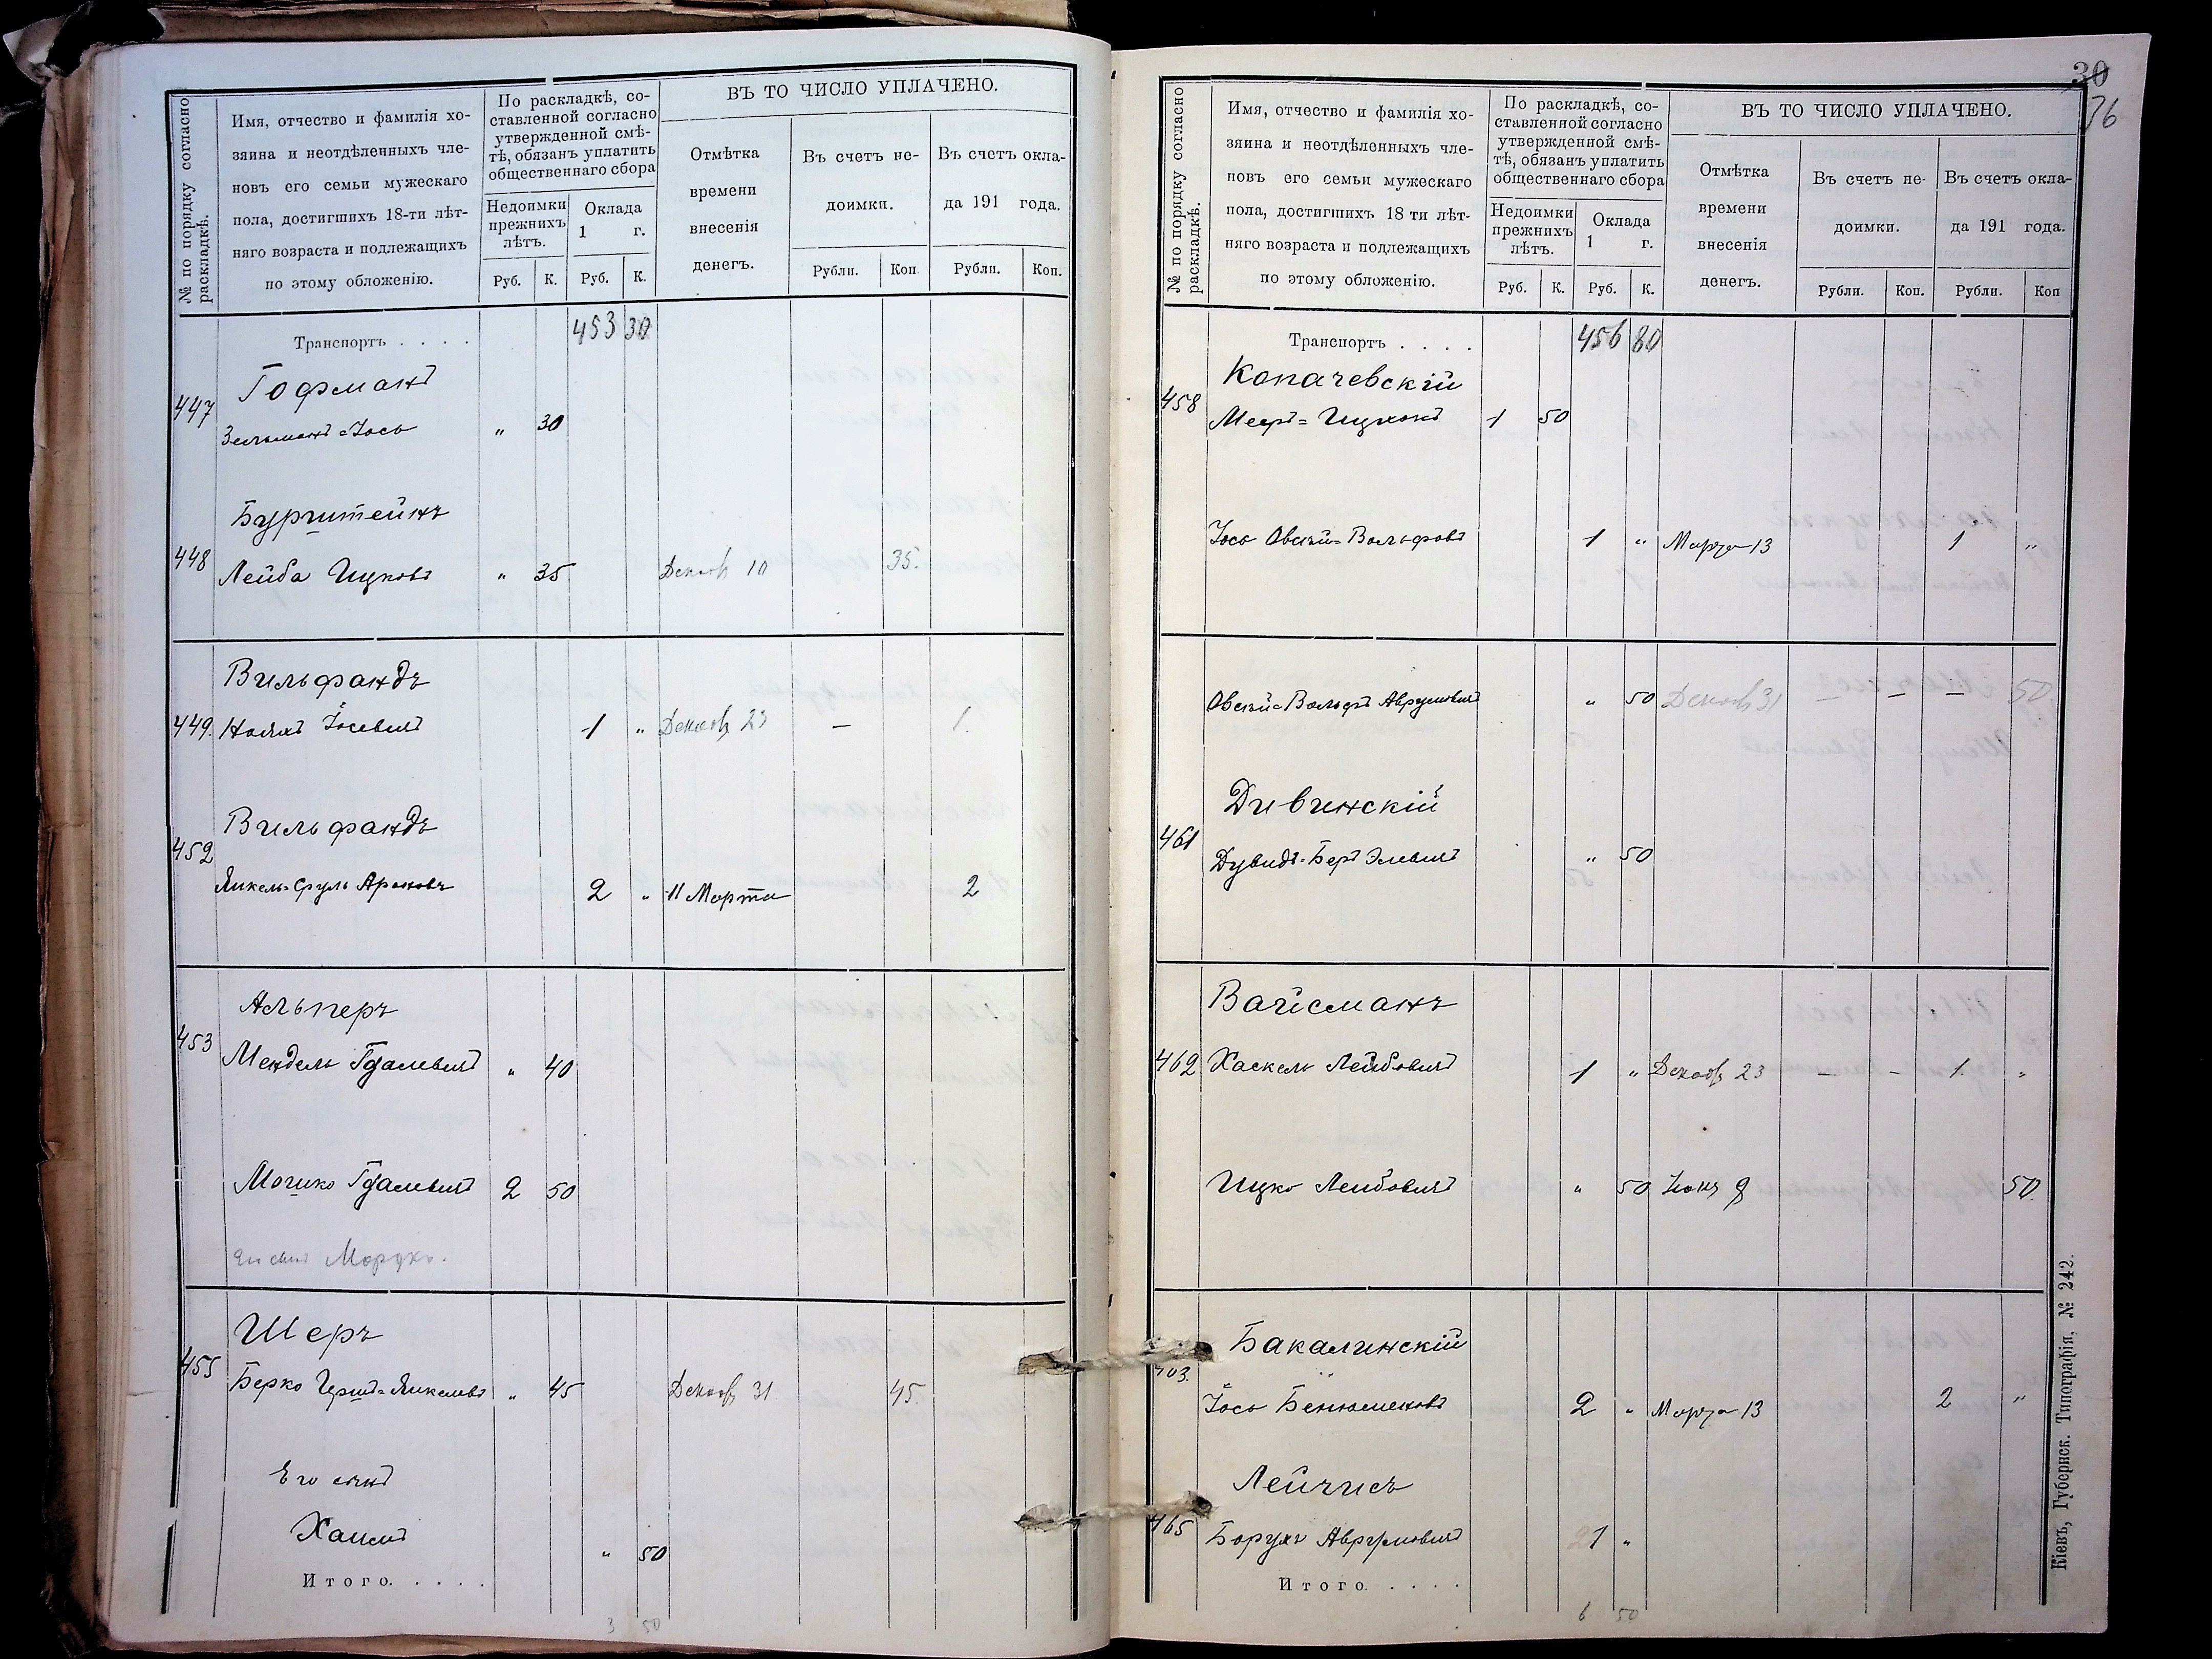 № по порядку согласно раскладкѣ.
Имя, отчество и фамилія хо-
зяина и неотдѣленныхъ чле-
новъ его семьи мужескаго
пола, достигшихъ 18-ти лѣт-
няго возраста и подлежащихъ
по этому обложенію.
По раскладкѣ, со-
ставленной согласно
утвержденной смѣ-
тѣ, обязанъ уплатить
общественнаго сбора
Недоимки
прежнихъ
лѣтъ.
Оклада
1 г.
Руб. К. Руб. К.
ВЪ ТО ЧИСЛО УПЛАЧЕНО.
Отмѣтка
времени
внесенія
денегъ.
Въ счетъ не-
доимки.
Въ счетъ окла-
да 191 года.
Рубли. Коп. Рубли. Коп.
Транспортъ . . . . 453 30
Гофманъ
447 Зельманъ=Іось „ 30
Бурштейнъ
448 Лейба Ицковъ „ 35 Декабр 10 35.
Вильфандъ
449. Іосевичъ 1 „ Декабр 23 — 1.
Вильфандъ
452 Янкель=Сруль Ароновъ 2 „ 11 Марта 2
Альперъ
453 Мендель Гдалевичъ „ 40
Мошко Гдалевичъ 2 50
Мордко.
Шеръ
455 Берко Герш=Янкелевъ „ 45 Декабр 31 45.
Его сынъ
Хаимъ „ 50
Итого. . . . .
3 50
30
76
№ по порядку согласно раскладкѣ.
Имя, отчество и фамилія хо-
зяина и неотдѣленныхъ чле-
новъ его семьи мужескаго
пола, достигшихъ 18 ти лѣт-
няго возраста и подлежащихъ
по этому обложенію.
По раскладкѣ, со-
ставленной согласно
утвержденной смѣ-
тѣ, обязанъ уплатить
общественнаго сбора
Недоимки
прежнихъ
лѣтъ.
Оклада
1 г.
Руб. К. Руб. К.
ВЪ ТО ЧИСЛО УПЛАЧЕНО.
Отмѣтка
времени
внесенія
денегъ.
Въ счетъ не-
доимки.
Въ счетъ окла-
да 191 года.
Рубли. Коп. Рубли. Коп
Транспортъ . . . . 456 80
Копачевскій
458 Меер= Ицковъ 1 50
Іось Овсей=Вольфовъ 1 „ Марта 13 1 „
Овсей=Вольфъ Аврумовичъ „ 50 Декабр 31 — — — 50
Дивинскій
461 Дувидъ=Беръ Элевичъ „ 50
Вайсманъ
462 Хаскель Лейбовичъ 1 „ Декабр 23 — - 1. „
Ицко Лейбовичъ „ 50 Іюня 9 50.
Бакалинскій
Іось Бенюменовъ 2 „ Марта 13 2 „
Лейчисъ
465 Борухъ Аврумовичъ 1 „
Итого. . . . .
6 50
Кіевъ, Губернск. Типографія, № 242.